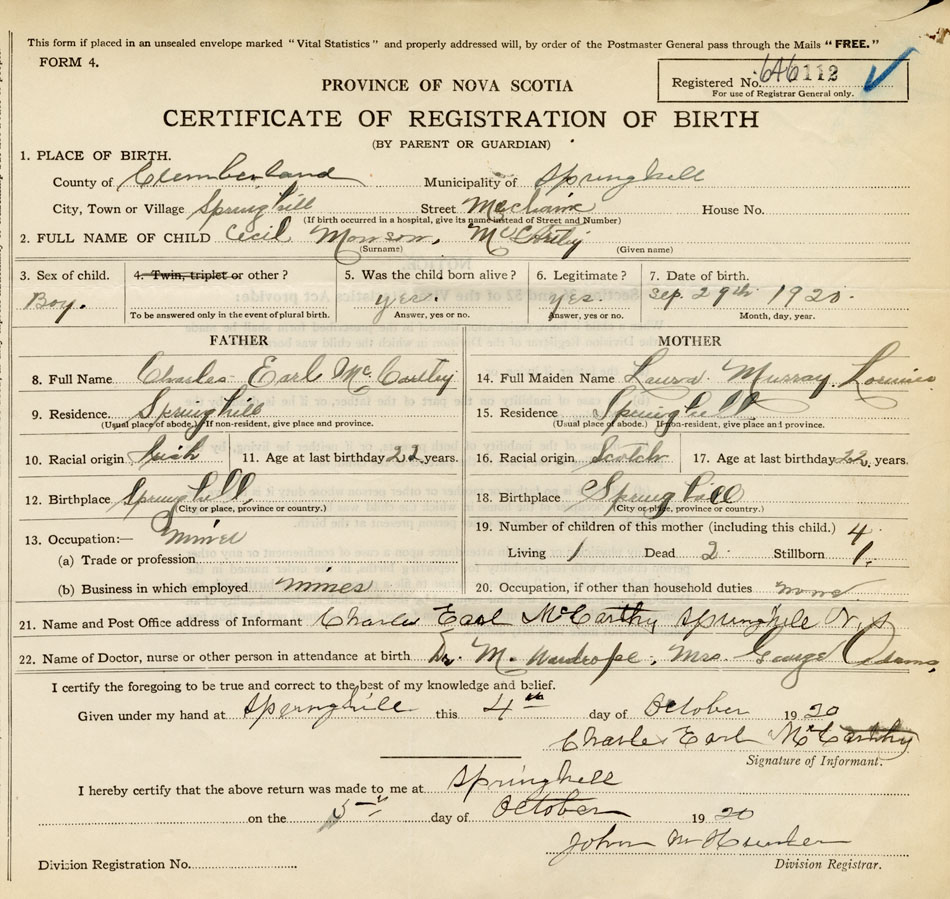 This form if placed in an unsealed envelope marked "Vital Statistics" and properly addressed will, by order of the Postmaster General pass through the Mails "FREE."
FORM 4.
Registered No. 646112
For use of Registrar General only.
PROVINCE OF NOVA SCOTIA
CERTIFICATE OF REGISTRATION OF BIRTH
(BY PARENT OR GUARDIAN)
1. PLACE OF BIRTH.
County of Cumberland Municipality of Springhill
City, Town or Village Springhill Street Mechanic House No.
(If birth occurred in a hospital, give its name instead of Street and Number)
2. FULL NAME OF CHILD Cecil McCarthy
(Surname) (Given name)
3. Sex of child. 4. Twin, triplet or other? 5. Was the child born alive? 6. Legitimate? 7. Date of birth.
Boy. yes. Yes. Sep. 29th 1920.
To be answered only in the event of plural birth. Answer, yes or no. Answer, yes or no. Month, day, year.
FATHER MOTHER
8. Full Name Charles Earl McCarthy 14. Full Maiden Name Laura Murray
9. Residence. Springhill 15. Residence Springhill
(Usual place of abode.) If non-resident, give place and province. (Usual place of abode.) If non-resident, give place and province.
10. Racial origin Irish 11. Age at last birthday 22 years. 16. Racial origin Scotch 17. Age at last birthday 22 years.
12. Birthplace Springhill, 18. Birthplace Springhill
(City or place, province or country.) (City or place, province or country.)
13. Occupation:— Miner 19. Number of children of this mother (including this child.) 4
(a) Trade or profession Living 1 Dead 2 Stillborn 1.
(b) Business in which employed mines 20. Occupation, if other than household duties none
21. Name and Post Office address of Informant Charles Earl McCarthy Springhill N.S
22. Name of Doctor, nurse or other person in attendance at birth Dr. M. Wardrope, Mrs. George Adams,
I certify the foregoing to be true and correct to the best of my knowledge and belief.
Given under my hand at Springhill this 4th day of October 1920
Charles Earl McCarthy
Signature of Informant.
I hereby certify that the above return was made to me at Springhill
on the 5th day of October 1920
John
Division Registration No. Division Registrar.